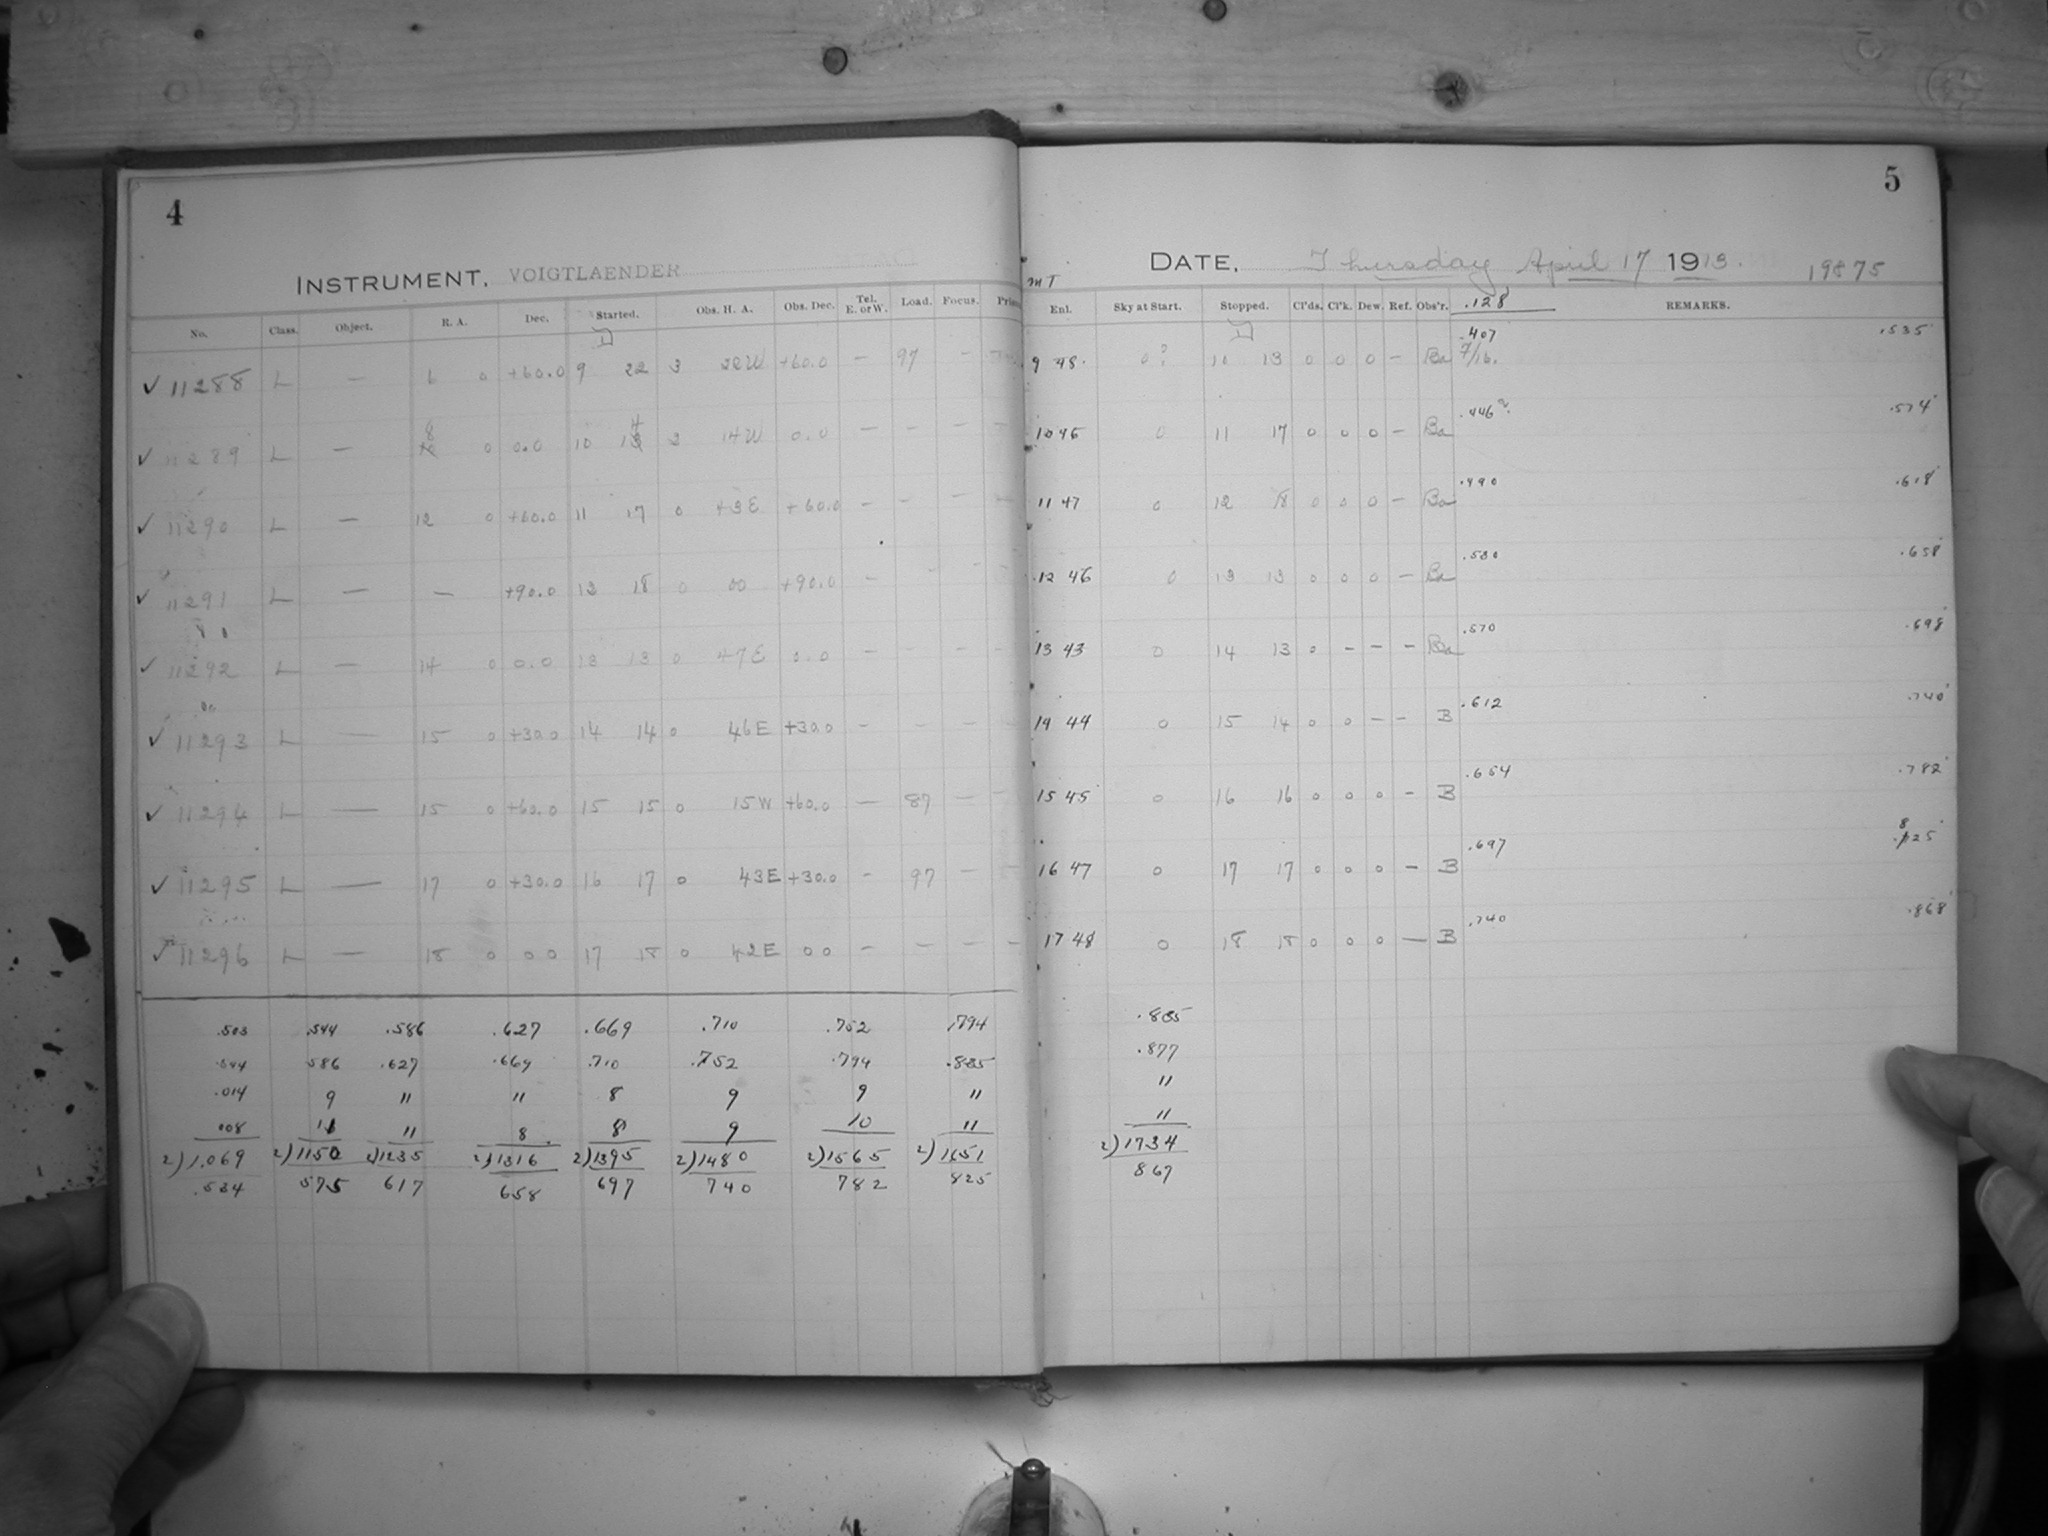 4
INSTRUMENT, VOIGTLAENDER
No. Class. Object. R. A. Dec. Started. Obs. H. A. Obs. Dec. Tel. E. or W. Load. Focus.
✓ 11288 L — 6 0 +60.0 9 22 3 22W +60.0 — 97 —
✓ 11289 L — 8 0 0.0 10 14 2 14W 0.0 — — — —
✓ 11290 L — 12 0 +60.0 11 17 0 43E +60.0 — — — —
✓ 11291 L — — +90.0 12 18 0 00 +90.0 — — — —
✓ 11292 L — 14 0 0.0 13 13 0 47E 0.0 — — — —
✓ 11293 L — 15 0 +30.0 14 14 0 46E +30.0 — — — —
✓ 11294 L — 15 0 +60.0 15 15 0 15W +60.0 — 87 — —
✓ 11295 L — 17 0 +30.0 16 17 0 43E +30.0 — 97 — —
✓ 11296 L — 18 0 0 0 17 18 0 42E 0 0 — — — —
.503 .544 .586 .627 .669 .710 .752 .794
.544 586 .627 .669 .710 .752 .794 .835
.014 9 11 11 8 9 9 11
008 11 11 8 8 9 10 11
2)1.069 2)1150 2)1235 2)1316 2)1395 2)1480 2)1565 2)1651
.534 575 617 658 697 740 782 825
5
DATE, Thursday April 17 1913. 19875
MT
Enl. Sky at Start. Stopped. Cl'ds. Cl'k. Dew. Ref. Obs'r. .128 REMARKS.
.407 .535
9 48 0? 10 13 0 0 0 — Ba 7/16.
.446 .574
10 45 0 11 17 0 0 0 — Ba
.490 .618
11 47 0 12 18 0 0 0 — Ba
.530 .658
12 46 0 13 13 0 0 0 — Ba
.570 .698
13 43 0 14 13 0 — — — Ba
.612 .740
14 44 0 15 14 0 0 — — B
.654 .782
15 45 0 16 16 0 0 0 — B
.697 .825
16 47 0 17 17 0 0 0 — B
.740 .868
17 48 0 18 18 0 0 0 — B
.835
.877
11
11
2)1734
867